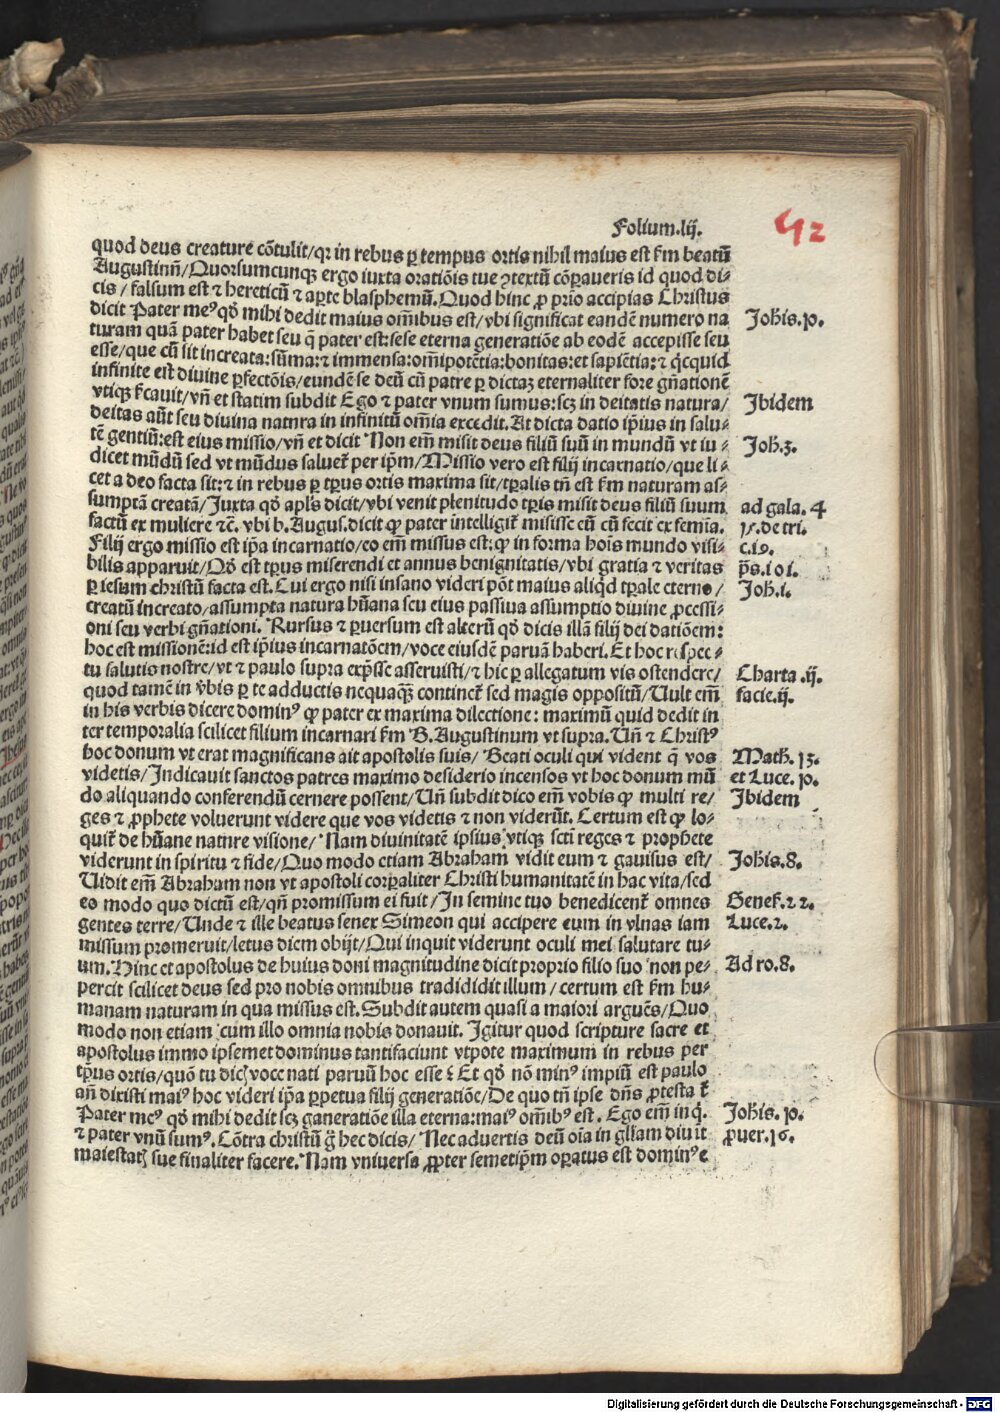 Folium.lij.
42
quod deus creature cōtulit/qꝛ in rebus ꝑ tempus ortis nihil maius est ẜm beatū
Augustinū/Quorsumcunqꝫ ergo iuxta oratiōis tue ꝯtextū cōꝑaueris id quod di⸗
cis/falsum est ⁊ hereticū ⁊ aꝑte blasphemū.Quod hinc ꝓ prīo accipias Christus
dicit Pater meꝰ qō mihi dedit maius om̄ibus est/vbi significat eandē numero na
Johīs.10.
turam quā pater habet seu q̄ pater est:sese eterna generatiōe ab eodē accepisse seu
esse/que cū sit increata:sūma:⁊ immensa:om̄ipotētia:bonitas:et sapiētia:⁊ q̇cquid
infinite est diuine ꝑfectōis/eundē se deū cū patre ꝑ dictaꝫ eternaliter fore gn̄ationē
vtiqꝫ ẜcauit/vn̄ et statim subdit Ego ⁊ pater vnum sumus:scꝫ in deitatis natura/
Ibidem
deitas aūt seu diuina natura in infinitū om̄ia excedit.At dicta datio ip̄ius in salu⸗
tē gentiū:est eius missio/vn̄ et dicit Non em̄ misit deus filiū suū in mundū vt iu⸗
Joh.3.
dicet mūdū sed vt mūdus saluet̄ per ip̄m/Missio vero est filij incarnatio/que li⸗
cet a deo facta sit:⁊ in rebus ꝑ tp̄us ortis maxima sit/tp̄alis tn̄ est ẜm naturam as⸗
sumptā creatā/Juxta qō apl̄s dicit/vbi venit plenitudo tp̄is misit deus filiū suum
ad gala. 4
factū ex muliere ⁊c̄. vbi b.Augus.dicit ꝙ pater intelligit̄ misisse eū cū fecit ex femīa.
15.de tri.
Filij ergo missio est ip̄a incarnatio/eo em̄ missus est:ꝙ in forma hoīs mundo visi⸗
c.19.
bilis apparuit/Qō est tp̄us miserendi et annus benignitatis/vbi gratia ⁊ veritas
p̄s.101.
ꝑ iesum christū facta est.Cui ergo nisi insano videri pōt maius aliqd tp̄ale eterno/
Joh.1.
creatū increato/assumpta natura hūana seu eius passiua assumptio diuine ꝓcessi⸗
oni seu verbi gn̄ationi. Rursus ⁊ ꝑuersum est alterū qō dicis illā filij dei datiōem:
hoc est missionē:id est ip̄ius incarnatōem/voce eiusdē paruā haberi.Et hoc respec⸗
tu salutis nostre/vt ⁊ paulo supra exp̄sse asseruisti/⁊ hic ꝑ allegatum vis ostendere/
Charta .ij.
quod tamē in v̄bis ꝑ te adductis nequaqꝫ continet̄ sed magis oppositū/Uult em̄
facie.ij.
in his verbis dicere dominꝰ ꝙ pater ex maxima dilectione: maximū quid dedit in
ter temporalia scilicet filium incarnari ẜm B.Augustinum vt supra.Un̄ ⁊ Christꝰ
hoc donum vt erat magnificans ait apostolis suis/ Beati oculi qui vident q̄ vos
Math.13.
videtis/Indicauit sanctos patres maximo desiderio incensos vt hoc donum mū
et Luce.10.
do aliquando conferendū cernere possent/Un̄ subdit dico em̄ vobis ꝙ multi re/
Ibidem
ges ⁊ ꝓphete voluerunt videre que vos videtis ⁊ non viderūt. Certum est ꝙ lo⸗
quit̄ de hūane nature visione/ Nam diuinitatē ipsius vtiqꝫ scti reges ⁊ prophete
viderunt in spiritu ⁊ fide/Quo modo etiam Abraham vidit eum ⁊ gauisus est/
Johīs.8.
Uidit em̄ Abraham non vt apostoli corꝑaliter Christi humanitatē in hac vita/sed
eo modo quo dictū est/qn̄ promissum ei fuit/In semine tuo benedicent̄ omnes
Genes.22.
gentes terre/Unde ⁊ ille beatus senex Simeon qui accipere eum in vlnas iam
Luce.2.
missum promeruit/letus diem obijt/Qui inquit viderunt oculi mei salutare tu⸗
um.Hinc et apostolus de huius doni magnitudine dicit proprio filio suo non pe⸗
Ad ro.8.
percit scilicet deus sed pro nobis omnibus tradididit illum/certum est ẜm hu⸗
manam naturam in qua missus est.Subdit autem quasi a maiori arguēs/Quo
modo non etiam cum illo omnia nobis donauit. Igitur quod scripture sacre et
apostolus immo ipsemet dominus tantifaciunt vtpote maximum in rebus per
tp̄us ortis/quō tu dicꝭ voce nati paruū hoc esse? Et qō nō minꝰ impiū est paulo
an̄ dixisti maiꝰ hoc videri ip̄a ꝑpetua filij generatiōe/De quo tn̄ ipse dn̄s ꝓtestat̄
Pater meꝰ qō mihi dedit scꝫ ganeratiōe illa eterna:maiꝰ om̄ibꝰ est. Ego em̄ inq̇.
Johīs. 10.
⁊ pater vnū sumꝰ.Cōtra christū g̊ hec dicis/ Nec aduertis deū oīa in gl̄iam diuīt
ꝓuer.16.
maiestatꝭ sue finaliter facere.Nam vniuersa ꝓpter semetip̄m oꝑatus est dominꝰ e
Digitalisierung gefördert durch die Deutsche Forschungsgemeinschaft - DFG